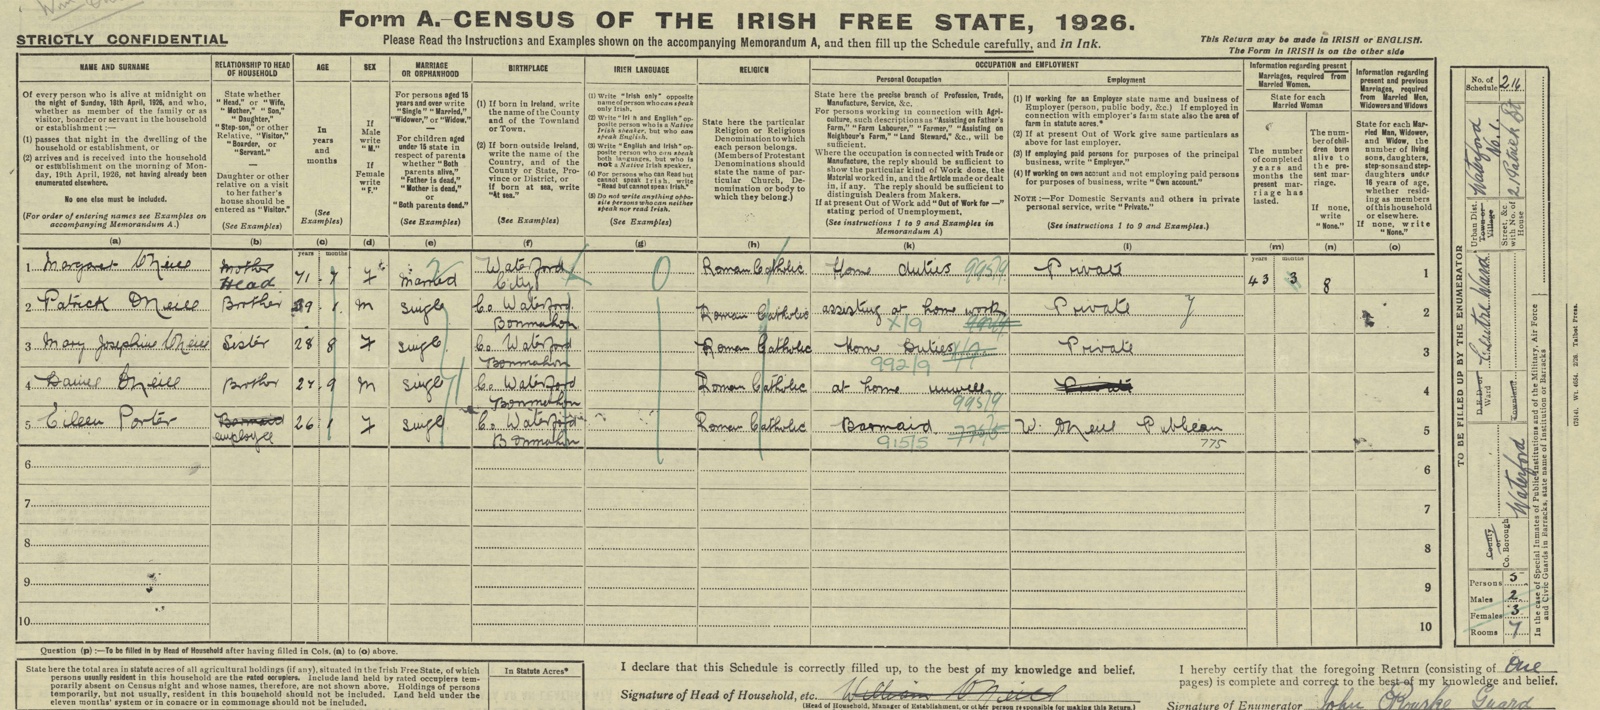 Form A.—CENSUS OF THE IRISH FREE STATE, 1926.
STRICTLY CONFIDENTIAL
Please Read the Instructions and Examples shown on the accompanying Memorandum A, and then fill up the Schedule carefully, and in Ink.
This Return may be made in IRISH or ENGLISH.
The Form in IRISH is on the other side
NAME AND SURNAME
Of every person who is alive at midnight on the night of Sunday, 18th April, 1926, and who, whether as member of the family or as visitor, boarder or servant in the household or establishment :—
(1) passes that night in the dwelling of the household or establishment, or
(2) arrives and is received into the household or establishment on the morning of Monday, 19th April, 1926, not having already been enumerated elsewhere.
No one else must be included.
(For order of entering names see Examples on accompanying Memorandum A.)
(a)
RELATIONSHIP TO HEAD OF HOUSEHOLD
State whether "Head," or "Wife," "Mother," "Son," "Daughter," "Step-son," or other Relative, "Visitor," "Boarder," or "Servant."
Daughter or other relative on a visit to her father's house should be entered as "Visitor."
(See Examples)
(b)
AGE
In years and months
(See Examples)
(c)
SEX
If Male write "M."
If Female write "F."
(d)
MARRIAGE OR ORPHANHOOD
For persons aged 15 years and over write "Single," "Married," "Widower," or "Widow."
For children aged under 15 state in respect of parents whether "Both parents alive," "Father is dead," "Mother is dead," or "Both parents dead."
(See Examples)
(e)
BIRTHPLACE
(1) If born in Ireland, write name of the County and of the Townland or Town.
(2) If born outside Ireland, write the name of the County, and of the County or State, Province or District, or if born at sea, write "At sea."
(See Examples)
(f)
IRISH LANGUAGE
(1) Write "Irish only" opposite name of person who can speak only Irish.
(2) Write "Irish and English" opposite person who is a Native Irish speaker, but who can speak English.
(3) Write "English and Irish" opposite person who can speak both languages, but who is not a Native Irish speaker.
(4) For persons who can Read but cannot speak Irish, write "Read but cannot speak."
(5) Do not write anything opposite persons who can neither speak nor read Irish.
(See Examples)
(g)
RELIGION
State here the particular Religion or Religious Denomination to which each person belongs. (Members of Protestant Denominations should state the name of particular Church, Denomination or body to which they belong.)
(h)
OCCUPATION AND EMPLOYMENT
Personal Occupation
State here the precise branch of Profession, Trade, Manufacture, Service, &c.
For persons working in connection with Agriculture, such descriptions as "Assisting on Father's Farm," "Farm Labourer," "Farmer," "Assisting on Neighbour's Farm," "Land Steward," &c., will be sufficient.
Where the occupation is connected with Trade or Manufacture, the reply should be sufficient to show the particular kind of Work done, the Material worked in, and the Article made or dealt in, if any. The reply should be sufficient to distinguish Dealers from Makers.
If at present Out of Work add "Out of Work for —" stating period of Unemployment.
(See instructions 1 to 9 and Examples in Memorandum A)
(k)
Employment
(1) If working for an Employer state name and business of Employer (person, public body, &c.) If employed in connection with employer's farm state also the area of farm in statute acres.*
(2) If at present Out of Work give same particulars as above for last employer.
(3) If employing paid persons for purposes of principal business, write "Employer."
(4) If working on own account and not employing paid persons for purposes of business, write "Own account."
NOTE :—For Domestic Servants and others in private personal service, write "Private."
(See instructions 1 to 9 and Examples.)
(l)
Information regarding present Marriages, required from Married Women.
State for each Married Woman
The number of completed years and months the present marriage has lasted.
(m)
The number of children born alive to the present marriage.
If none, write "None."
(n)
Information regarding present and previous Marriages, required from Married Men, Widowers and Widows
State for each Married Man, Widower, and Widow, the number of living sons, daughters, step-sons and step-daughters under 16 years of age, whether residing as members of this household or elsewhere.
If none, write "None."
(o)
years months
years months
1 Margaret O'Neill Mother Head 71 - 7 F married Waterford City 0 Roman Catholic Home duties 995/9 Private 43 3 8 1
2 Patrick O'Neill Brother 39 . 1 M single Co. Waterford Bonmahon Roman Catholic assisting at home work X/9 Private 2
3 Mary Josephine O'Neill Sister 28 8 F single Co. Waterford Bonmahon Roman Catholic Home Duties 992/9 Private 3
4 O'Neill Brother 27 . 9 M single Co. Waterford Bonmahon Roman Catholic at home unwell 995/9 Private 4
5 Eileen Porter Barmaid employee 26 - 1 F single Co. Waterford Bonmahon Roman Catholic Barmaid 915/5 775/5 W. O'Neill Publican 775 5
6 6
7 7
8 8
9 9
10 10
Question (p) :—To be filled in by Head of Household after having filled in Cols. (a) to (o) above.
State here the total area in statute acres of all agricultural holdings (if any), situated in the Irish Free State, of which persons usually resident in this household are the rated occupiers. Include land held by rated occupiers temporarily absent on Census night and whose names, therefore, are not shown above. Holdings of persons temporarily, but not usually, resident in this household should not be included. Land held under the eleven months' system or in conacre or in commonage should not be included.
In Statute Acres*
I declare that this Schedule is correctly filled up, to the best of my knowledge and belief.
Signature of Head of Household, etc. William O'Neill
(Head of Household, Manager of Establishment, or other person responsible for making this Return.)
I hereby certify that the foregoing Return (consisting of one pages) is complete and correct to the best of my knowledge and belief.
Signature of Enumerator John O'Rourke Guard
TO BE FILLED UP BY THE ENUMERATOR
No. of Schedule 216
Urban Dist. Town or Village Waterford No. 1.
Street, &c. with No. of House
D.E.D. or Ward Centre Ward
Townland
County or Co. Borough Waterford
Persons 5
Males 2
Females 3
Rooms 7
In the case of Special Inmates of Public Institutions and of the Military, Air Force and Civic Guards in Barracks, state name of Institution or Barracks